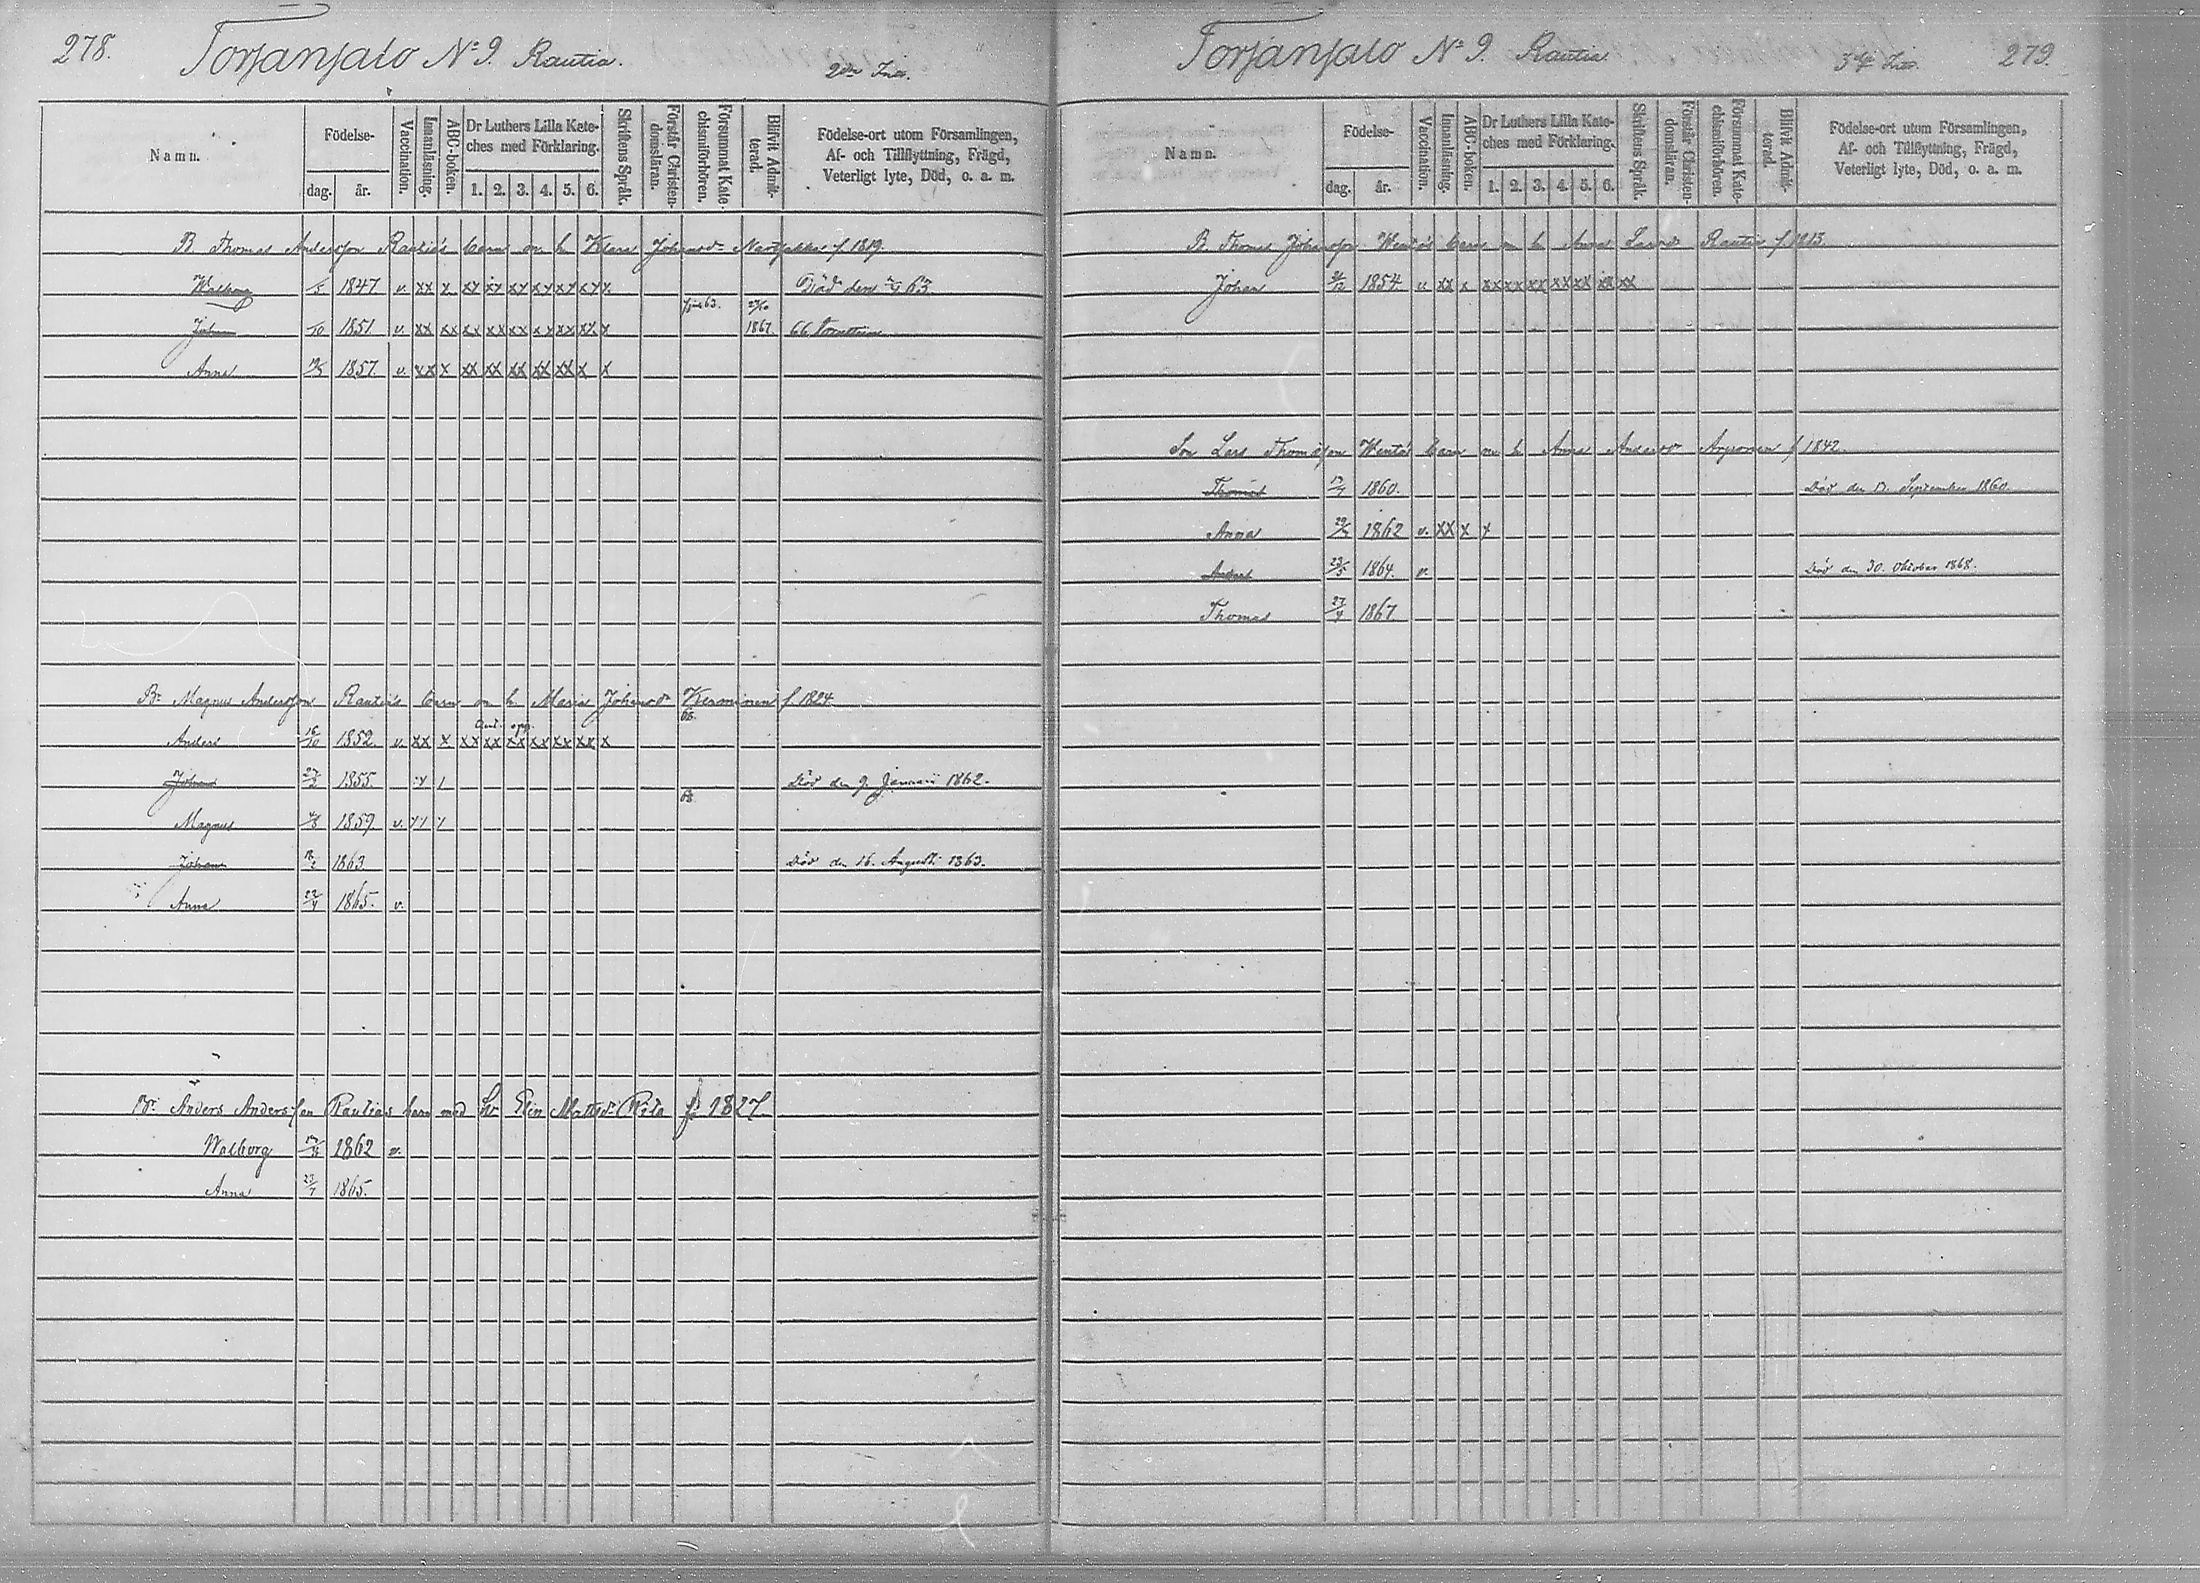 278. Torjansalo No 9. Rautia. 2dra Ins.
Namn. Födelse- dag. år. Vaccination. Innanläsning. ABC-boken. Dr Luthers Lilla Kateches med Förklaring. 1. 2. 3. 4. 5. 6. Skriftens Språk. Förstår Christendomsläran. Försummat Katechismiförhören. Blifvit Admitterad. Födelse-ort utom Församlingen, Af- och Tillflyttning, Frägd, Veterligt lyte, Död, o. a. m.
B. Thomas Andersson Rautias barn m h Klara Johansdr f. 1819.
Walborg 1847 v. xx x xx xx xx xx xx xx x Död den 63.
63. 27/10
Johan /10 1851 v. xx xx xx xx xx xx xx xx x 1867.
Anna 1857. v. xx x xx xx xx xx xx x x
Br Magnus Andersson Rautias barn m h Maria Johansdr Kerminen f. 1824.
66.
Anders 16/10 1852. v. xx x xx xx xx xx xx xx x
Johan 1855. Död den 9. Januari 1862.
68
Magnus 1859 v.
Johan 1863 Död den 16. Augusti 1863.
Anna 22/4 1865. v.
Br. Anders Andersson Rautias barn med h. Elin Mattsdr f. 1827.
Walborg 1862 v.
Anna 1865.
Torjansalo No 9. Rautia. 3dje Ins. 279.
Namn. Födelse- dag. år. Vaccination. Innanläsning. ABC-boken. Dr Luthers Lilla Kateches med Förklaring. 1. 2. 3. 4. 5. 6. Skriftens Språk. Förstår Christendomsläran. Försummat Katechismiförhören. Blifvit Admitterad. Födelse-ort utom Församlingen, Af- och Tillflyttning, Frägd, Veterligt lyte, Död, o. a. m.
B. Thomas Johansson barn m h Anna Larsdr Rautia f. 1813.
Johan 1854 v xx x xx xx xx xx xx xx xx
Son Lars Thomasson barn m h Anna Andersdr f 1842.
Thomas 1860. Död den September 1860.
Anna 1862 v. xx x x
Anders 1864. v. Död den 30. Oktober 1868.
Thomas 27/9 1867